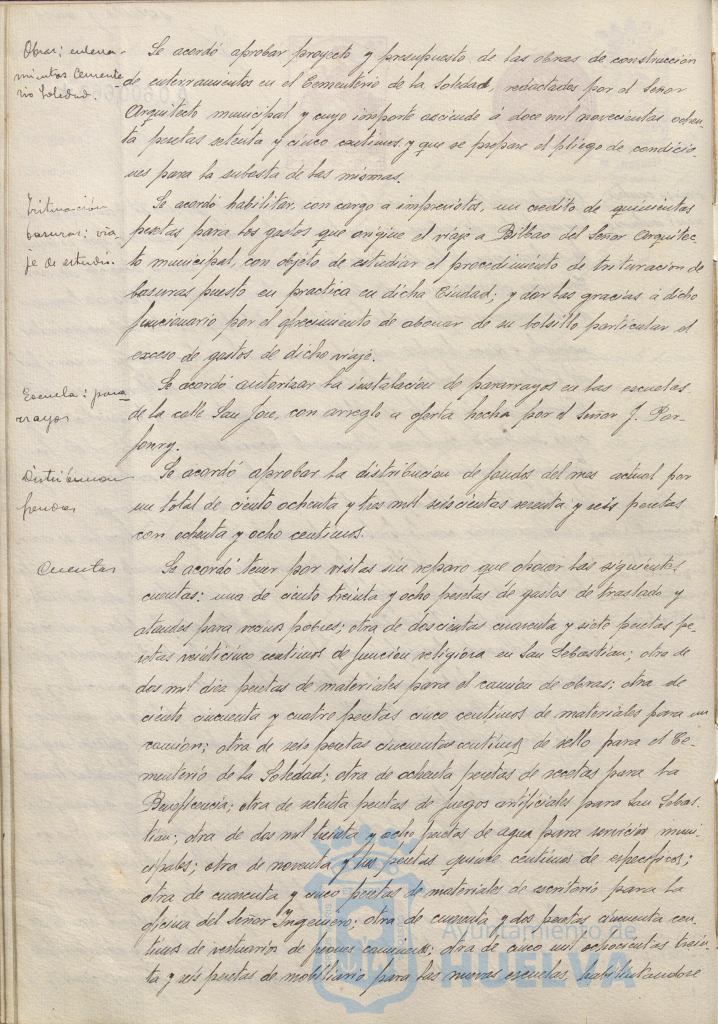 Obras; enterra-
mientos Cemente-
rio Soledad.
Se acordó aprobar proyecto y presupuesto de las obras de construcción
de enterramientos en el Cementerio de la Soledad, redactados por el Señor
Arquitecto municipal y cuyo importe asciende á doce mil novecientas ochen-
ta pesetas setenta y cinco centimos y que se prepare el pliego de condicio-
nes para la subasta de las mismas.
Trituración
basuras: via-
je de estudio.
Se acordó habilitar, con cargo a imprevistos, un credito de quinientas
pesetas para los gastos que origine el viaje a Bilbao del Señor Arquitec-
to municipal, con objeto de estudiar el procedimiento de trituracion de
basuras puesto en practica en dicha Ciudad; y dar las gracias á dicho
funcionario por el ofrecimiento de abonar de su bolsillo particular el
exceso de gastos de dicho viaje.
Escuela: para-
rrayos
Se acordó autorizar la instalacion de pararrayos en las escuelas
de la calle San Jose, con arreglo a oferta hecha por el Señor J.
Distribucion
fondos
Se acordó aprobar la distribucion de fondos del mes actual por
un total de ciento ochenta y tres mil seiscientas y seis pesetas
con ochenta y ocho centimos.
Cuentas
Se acordó tener por vistas sin reparo que oponer las siguientes
cuentas: una de ciento treinta y ocho pesetas de gastos de traslado y
ataudes para vecinos pobres; otra de doscientas cuarenta y siete pesetas pe-
setas veinticinco centimos de funcion religiosa en San Sebastian; otra de
dos mil diez pesetas de materiales para el camion de obras; otra de
ciento cincuenta y cuatro pesetas cinco centimos de materiales para un
camion; otra de seis pesetas cincuenta centimos de sello para el Ce-
menterio de la Soledad; otra de ochenta pesetas de recetas para la
Beneficencia; otra de setenta pesetas de fuegos artificiales para San Sebas-
tian; otra de dos mil treinta y ocho pesetas de agua para servicios muni-
cipales; otra de noventa y tres pesetas quince centimos de especificos;
otra de cuarenta y cinco pesetas de materiales de escritorio para la
oficina del Señor Ingeniero; otra de cuarenta y dos pesetas cincuenta cen-
timos de vestuarios de peones camineros; otra de cinco mil ochocientas trein-
ta y seis pesetas de mobiliario para las nuevas escuelas, habilitandose
Ayuntamiento de
HUELVA